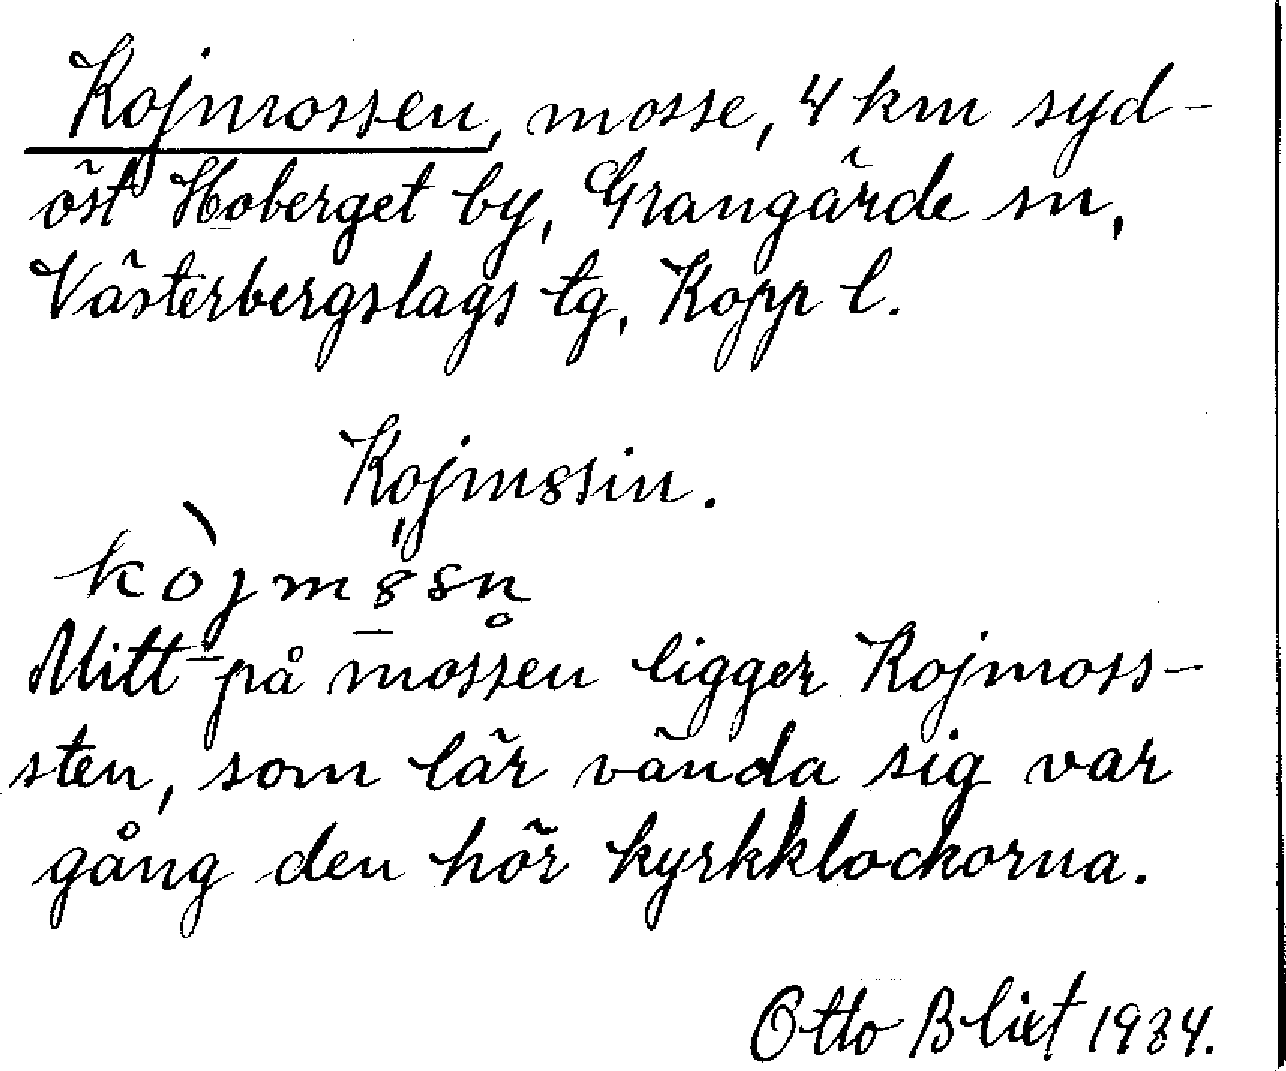 Kojmossen, mosse, 4 km syd-
öst Hoberget by, Grangärde sn,
Västerbergslags tg, Kopp l.
Kojmssin.
kòjmssn
Mitt på mossen ligger Kojmoss-
sten, som lär vända sig var
gång den hör kyrkklockorna.
Otto Blixt 1934.